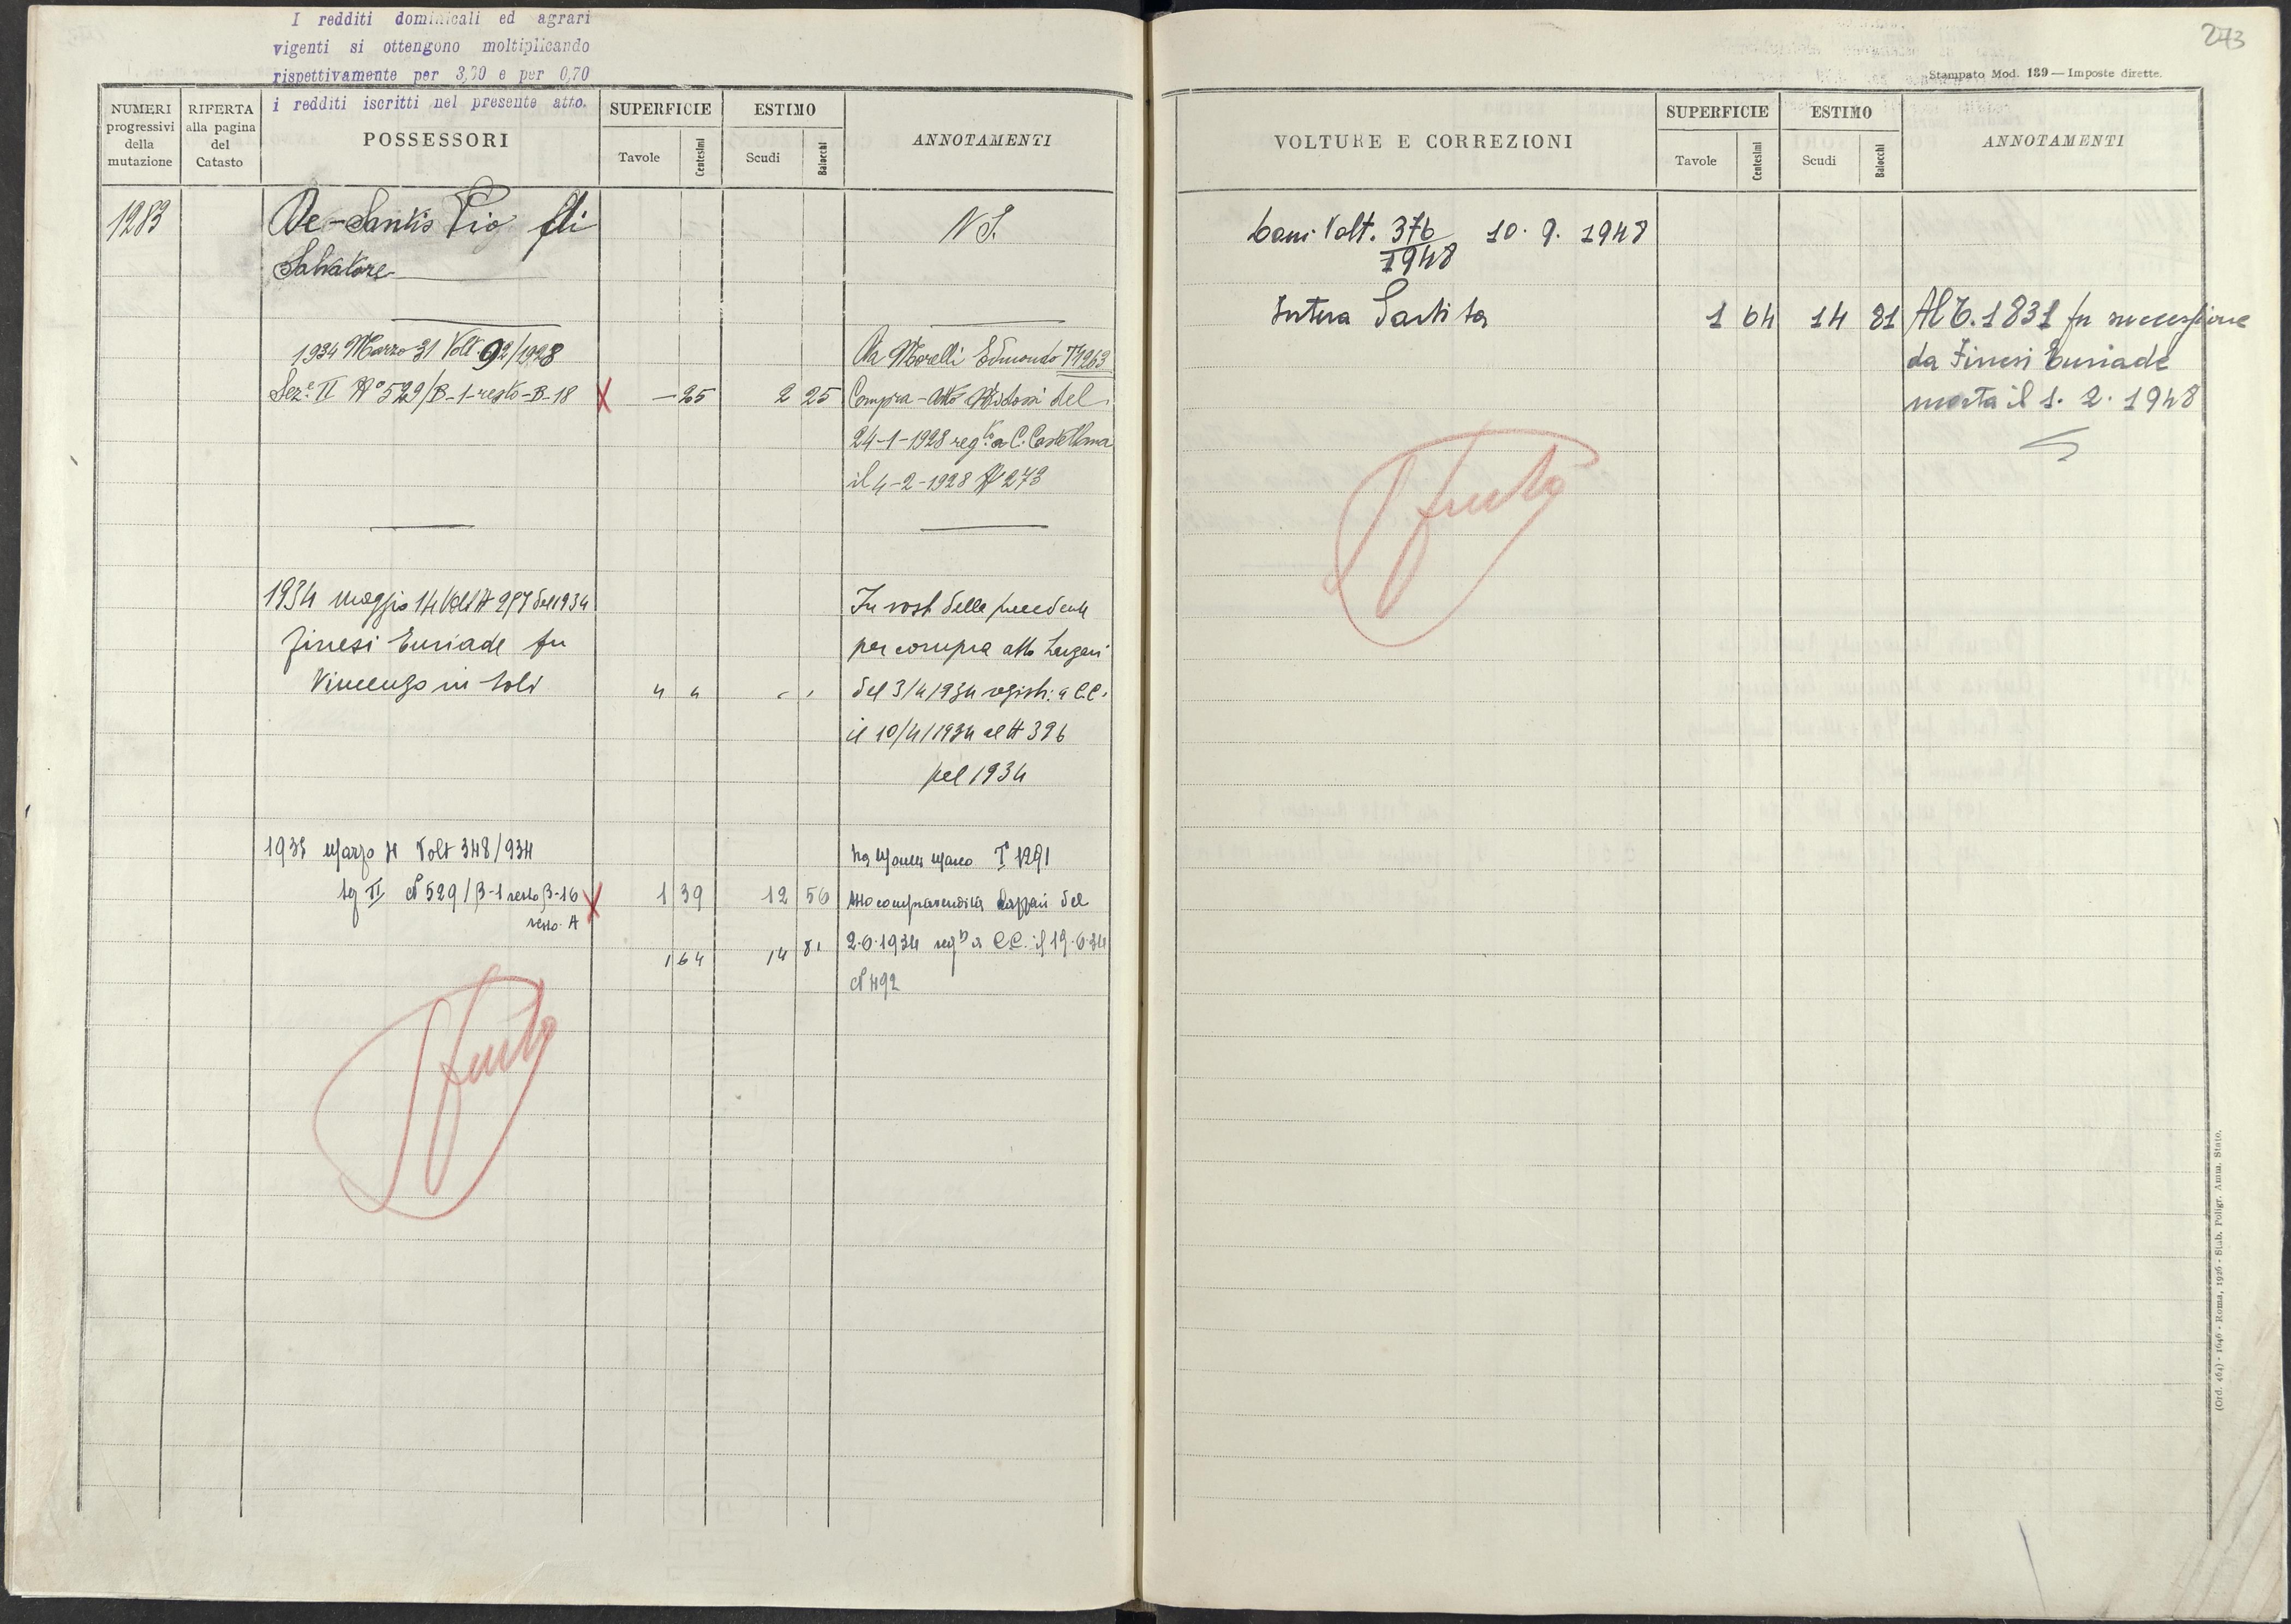 I redditi dominicali ed agrari
vigenti si ottengono moltiplicando
rispettivamente per 3,70 e per 0,70
i redditi iscritti nel presente atto.
NUMERI progressivi della mutazione
RIFERTA alla pagina del Catasto
POSSESSORI
SUPERFICIE
Tavole
Centesimi
ESTIMO
Scudi
Baiocchi
ANNOTAMENTI
1283 De-Santis Pio di
Salvatore
1934 Marzo 31 Volt 92/1928 Da Morelli Edmondo T 1263
Sez.e II No 529/B-1-resto-B-18 X — 25 2 25 Compra - Atto del
24-1-1928 reg.to a C. Castellana
il 4-2-1928 No 273
1934 Maggio 14 Volt N 297 del 1934 In rost della precedente
Finesi Euriade fu per compra atto
Vincenzo in " " " " del 3/4/934 registr. a C.C.
il 10/4/1934 al N 396
pel 1934
Marzo Volt 348/934 T 1291
II N 529/B-1 resto B-16 X 1 39 12 56 compravendita del
resto A
1 64 14 81 2.6.1934 a C.C. il 19.6.34
N 492
273
Stampato Mod. 139 — Imposte dirette.
VOLTURE E CORREZIONI
SUPERFICIE
Tavole
Centesimi
ESTIMO
Scudi
Baiocchi
ANNOTAMENTI
Volt. 376/1948 10. 9. 1948
Intera Partita 1 64 14 81 Al T. 1831 fu successione
da Finesi Euriade
morta il 1. 2. 1948
(Ord. 464) - 1646 - Roma, 1926 - Stab. Poligr. Amm. Stato.